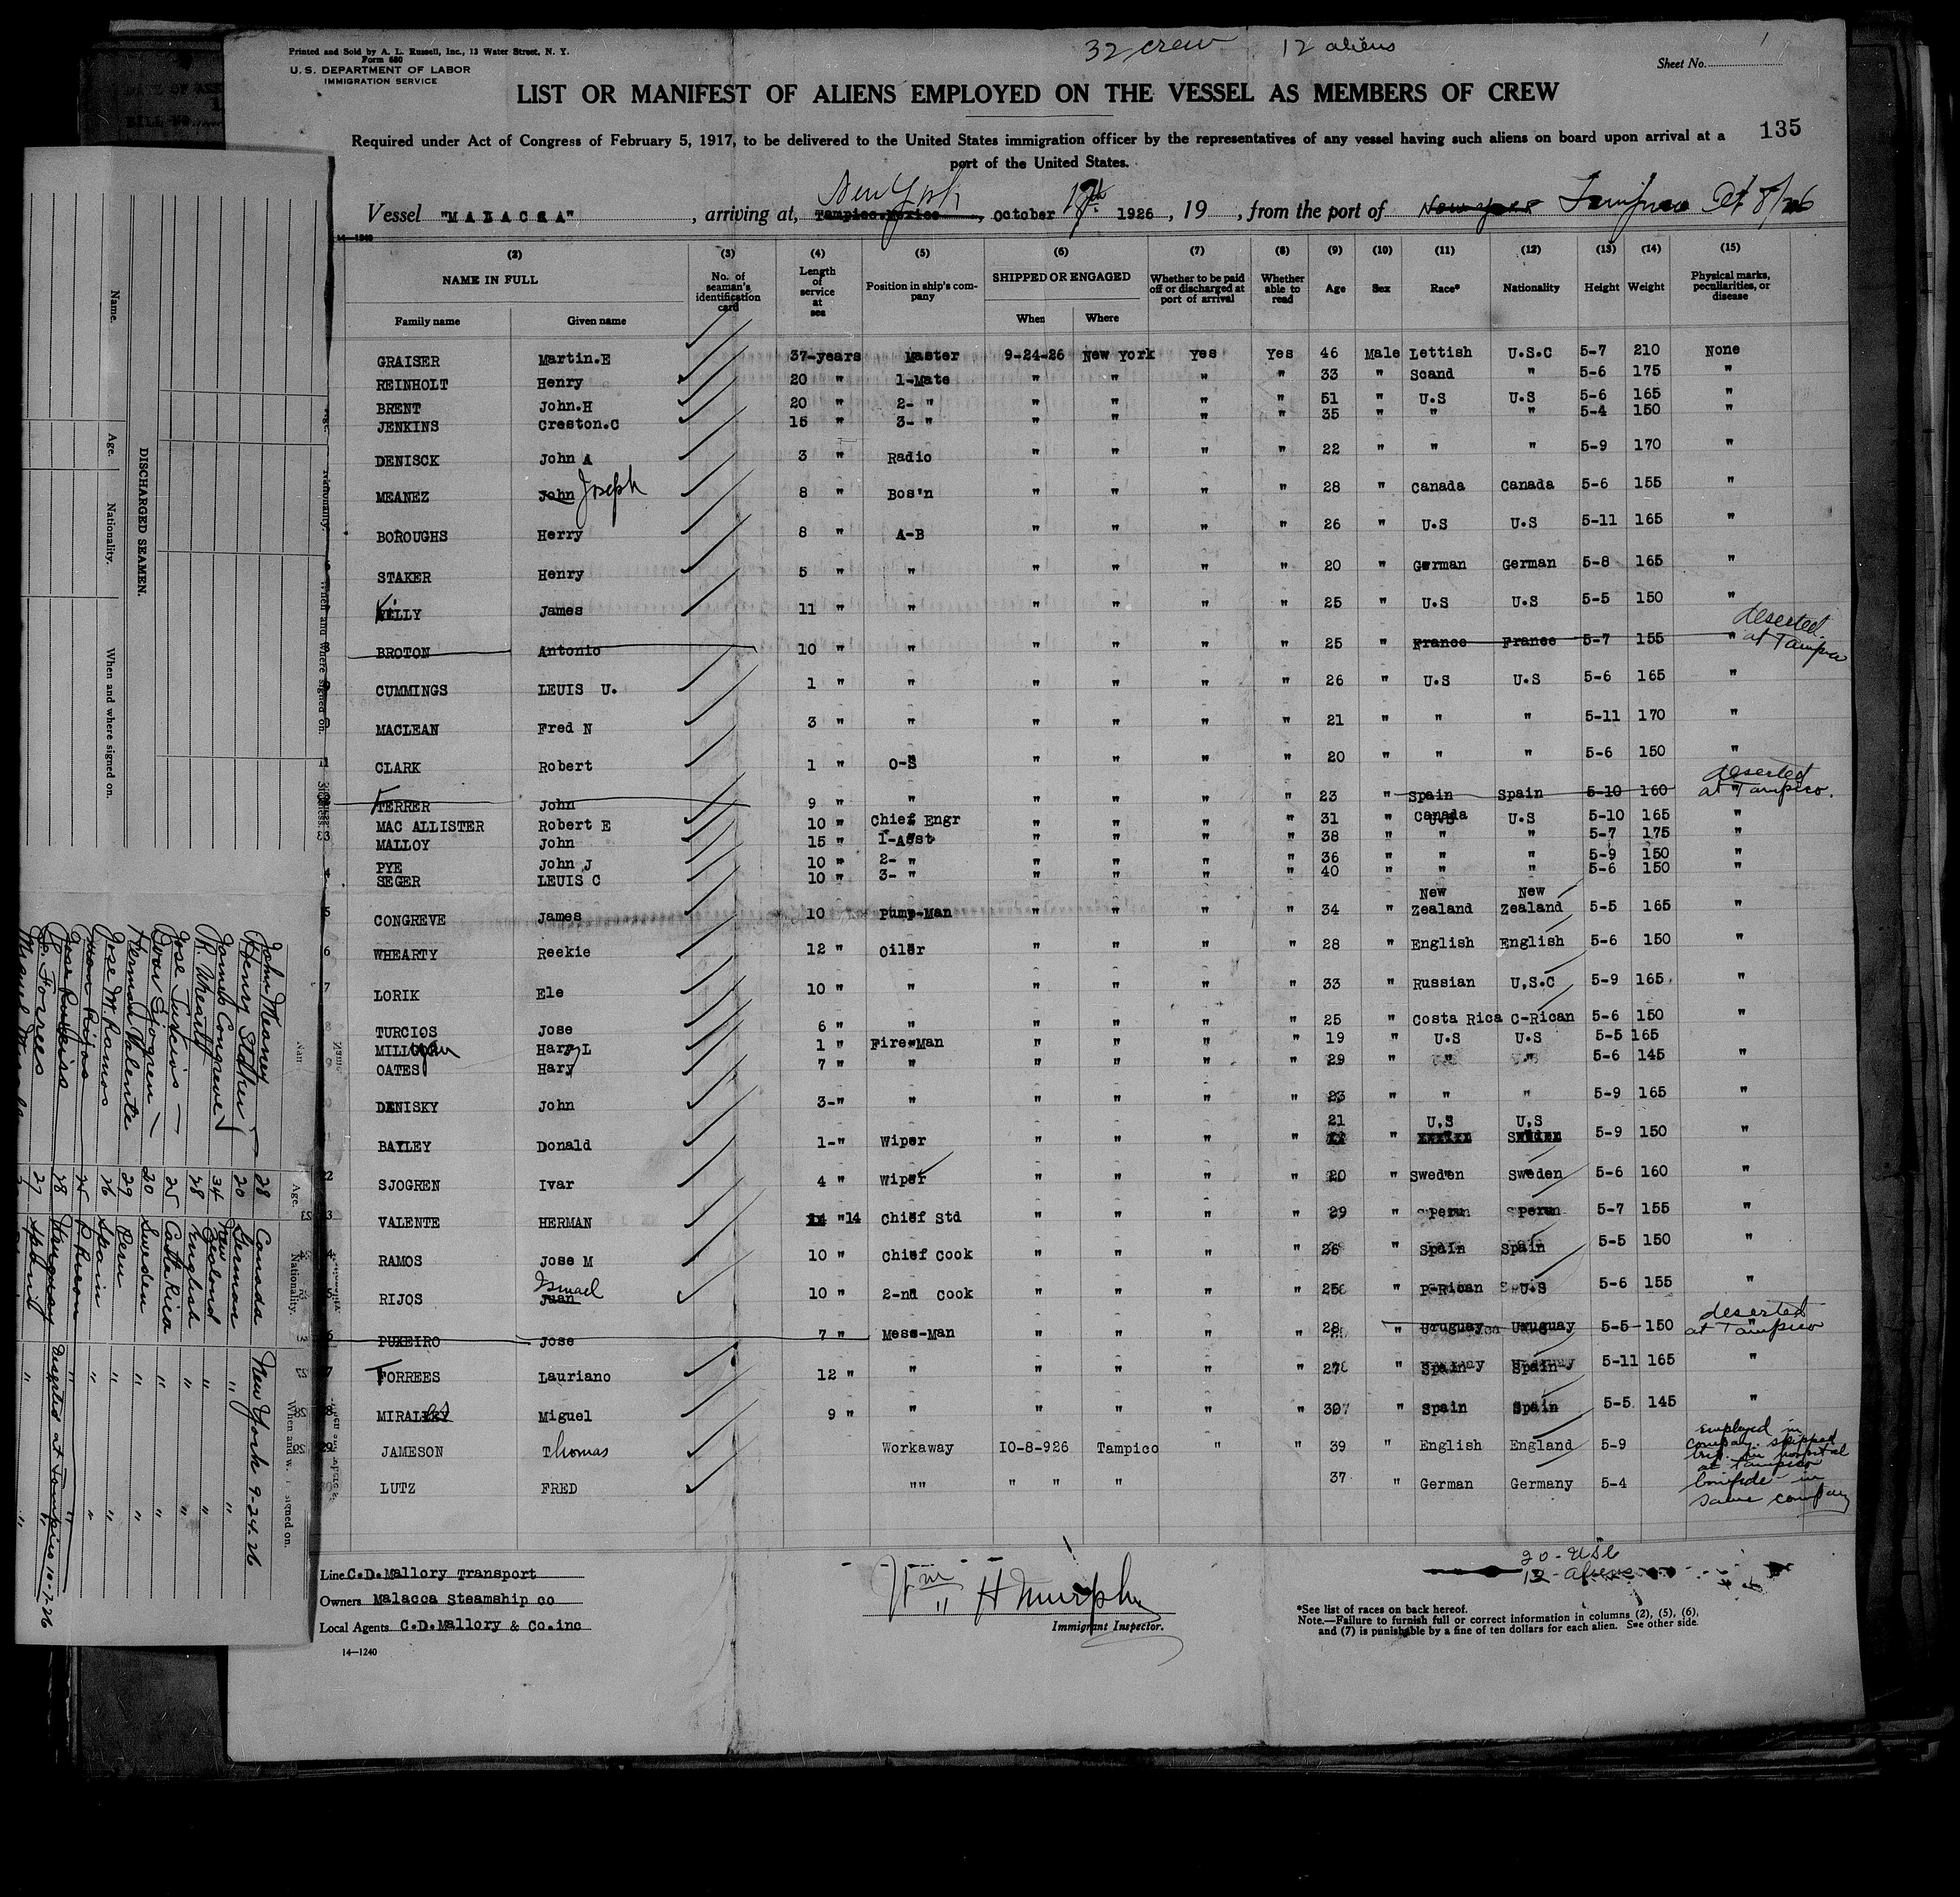 32 crew 12 aliens
1
Printed and Sold by A. L. Russell, Inc., 13 Water Street, N. Y.
Form 680
U. S. DEPARTMENT OF LABOR
IMMIGRATION SERVICE
Sheet No.
LIST OR MANIFEST OF ALIENS EMPLOYED ON THE VESSEL AS MEMBERS OF CREW
135
Required under Act of Congress of February 5, 1917, to be delivered to the United States immigration officer by the representatives of any vessel having such aliens on board upon arrival at a
port of the United States.
New York
Vessel , arriving at, Tampico.Mexico , October 17th 1926 , 19 , from the port of New York Tampico Oct 8/26
14-1240
(2) (3) (4) (5) (6) (7) (8) (9) (10) (11) (12) (13) (14) (15)
NAME IN FULL No. of seaman's identification card Length of service at sea Position in ship's company SHIPPED OR ENGAGED Whether to be paid off or discharged at port of arrival Whether able to read Age Sex Race* Nationality Height Weight Physical marks, peculiarities, or disease
Family name Given name When Where
GRAISER Martin.E 37-years Master 9-24-26 New York Yes Yes 46 Male Lettish U.S.C 5-7 210 None
REINHOLT Henry 20 " 1-Mate " " " " 33 " Scand " 5-6 175 "
BRENT John.H 20 " 2- " " " " " 51 " U.S U.S 5-6 165 "
JENKINS Creston.C 15 " 3- " " " " " 35 " " " 5-4 150 "
DENISCK John A 3 " Radio " " " " 22 " " " 5-9 170 "
MEANEZ John Joseph 8 " Bos'n " " " " 28 " Canada Canada 5-6 155 "
BOROUGHS Herry 8 " A-B " " " " 26 " U.S U.S 5-11 165 "
STAKER Henry 5 " " " " " " 20 " German German 5-8 165 "
KILLY James 11 " " " " " " 25 " U.S U.S 5-5 150 "
BROTON Antonio 10 " " " " " " 25 " France France 5-7 155 " deserted at Tampico
CUMMINGS LEUIS U. 1 " " " " " " 26 " U.S U.S 5-6 165 "
MACLEAN Fred N 3 " " " " " " 21 " " " 5-11 170 "
CLARK Robert 1 " O-S " " " " 20 " " " 5-6 150 "
FERRER John 9 " " " " " " 23 " Spain Spain 5-10 160 " deserted at Tampico.
MAC ALLISTER Robert E 10 " Chief Engr " " " " 31 " Canada U.S U.S 5-10 165 "
MALLOY John 15 " 1-Asst " " " " 38 " " " 5-7 175 "
PYE John J 10 " 2- " " " " " 36 " " " 5-9 150 "
SEGER LEUIS C 10 " 3- " " " " " 40 " " " 5-6 150 "
CONGREVE James 10 " Pump-Man " " " " 34 " New Zealand New Zealand 5-5 165 "
WHEARTY Reekie 12 " Oiler " " " " 28 " English English 5-6 150 "
LORIK Ele 10 " " " " " " 33 " Russian U.S.C 5-9 165 "
TURCIOS Jose 6 " " " " " " 25 " Costa Rica C-Rican 5-6 150 "
MILLIGAN Hary L 1 " Fire-Man " " " " 19 " U.S U.S 5-5 165
OATES Hary 7 " " " " " " 29 " " " 5-6 145 "
DENISKY John 3-" " " " " " 23 " " " 5-9 165 "
BAYLEY Donald 1-" Wiper " " " " 21 " U.S U.S 5-9 150 "
SJOGREN Ivar 4 " Wiper " " " " 20 " Sweden Sweden 5-6 160 "
VALENTE HERMAN "14 Chief Std " " " " 29 " Peru Peru 5-7 155 "
RAMOS Jose M 10 " Chief Cook " " " " 26 " Spain Spain 5-5 150 "
RIJOS Juan Ismael 10 " 2-nd Cook " " " " 25 " P-Rican U.S 5-6 155 "
PUXEIRO Jose 7 " Mess-Man " " " " 28 " Uruguay Uruguay 5-5 150 " deserted at Tampico
TORREES Lauriano 12 " " " " " " 27 " Spain Spain 5-11 165 "
Miguel 9 " " " " " " 30 " Spain Spain 5-5 145 "
JAMESON Thomas Workaway 10-8-926 Tampico " " 39 " English England 5-9 Employed in company. skipped trip. in hospital at Tampico
LUTZ FRED "" " " " 37 " German Germany 5-4 bonafide in same company
Line C.D.Mallory Transport
Owners Malacca Steamship co
Local Agents C.D.Mallory & Co.inc
14-1240
Wm H Murphy
Immigrant Inspector.
20-USC
12-aliens
*See list of races on back hereof.
Note.—Failure to furnish full or correct information in columns (2), (5), (6), and (7) is punishable by a fine of ten dollars for each alien. See other side.
DISCHARGED SEAMEN.
Name. Age. Nationality. When and where signed on.
Age. Nationality.
John Meaney 28 Canada New York 9-24-26
Henry Staker 20 German " "
James Congreve 34 New Zealand " "
R. Whearty 28 English " "
Jose Turcios 25 Costa Rica " "
Ivar Sjogren 20 Sweden " "
Herman Valente 29 Peru " "
Jose M. Ramos 26 Spain " "
Juan Rijos 25 P. Ricon " "
28 Uruguay Deserted at Tampico 10-7-26
27